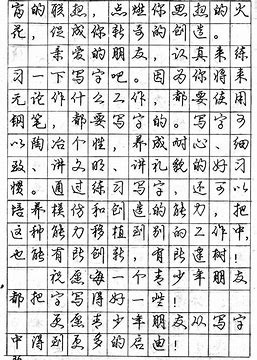 富的联想,点燃你思想的火
花,促成你新奇的创造。
亲爱的朋友,认真来练
习一下写字吧。因为你将来
无论作什么工作,都要使用
钢笔,都要写字的。写字可
以陶冶个性,养成耐心、细
致、讲文明、讲礼貌的好习
惯。通过练习写字,还可以
培养模仿和创造的能力,把
这种能力移植到别的工作中,
也能有所创新,有所建树!
祝愿每一个青少年朋友
都把字写得好一些!
更愿青少年朋友从写字
中得到更多的启迪!